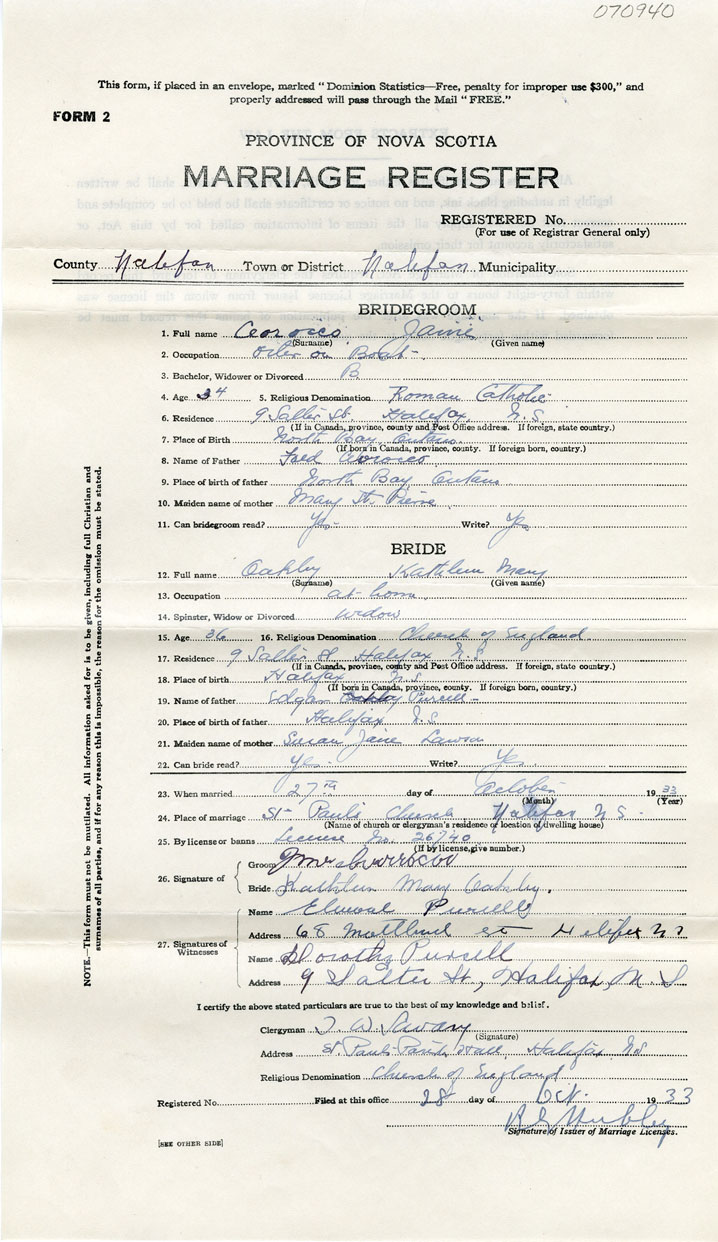 070940
This form, if placed in an envelope, marked "Dominion Statistics—Free, penalty for improper use $300," and
properly addressed will pass through the Mail "FREE."
FORM 2
PROVINCE OF NOVA SCOTIA
MARRIAGE REGISTER
REGISTERED No.
(For use of Registrar General only)
County Halifax Town or District Halifax Municipality
BRIDEGROOM
1. Full name Jamie
(Surname) (Given name)
2. Occupation Oiler on Boat
3. Bachelor, Widower or Divorced B.
4. Age 34 5. Religious Denomination Roman Catholic
6. Residence 9 Salter St. Halifax, N.S.
(If in Canada, province, county and Post Office address. If foreign, state country.)
7. Place of Birth North Bay, Ontario.
(If born in Canada, province, county. If foreign born, country.)
8. Name of Father
9. Place of birth of father North Bay Ontario
10. Maiden name of mother Mary St. Pierre
11. Can bridegroom read? Yes Write? Yes
BRIDE
12. Full name Oakley Kathleen Mary
(Surname) (Given name)
13. Occupation at home
14. Spinster, Widow or Divorced widow
15. Age 36 16. Religious Denomination Church of England
17. Residence 9 Salter St Halifax N.S.
(If in Canada, province, county and Post Office address. If foreign, state country.)
18. Place of birth Halifax N.S.
(If born in Canada, province, county. If foreign born, country.)
19. Name of father Edgar Purcell
20. Place of birth of father Halifax N.S.
21. Maiden name of mother Susan Jane Lawson
22. Can bride read? Yes Write? Yes
23. When married 27th day of October 1933
(Month) (Year)
24. Place of marriage St Paul's Church Halifax N S
(Name of church or clergyman's residence or location of dwelling house)
25. By license or banns License No. 26740
(If by license, give number.)
26. Signature of
Groom
Bride Kathleen Mary Oakley.
27. Signatures of Witnesses
Name Purcell
Address 68 St Halifax N S
Name Dorothy Purcell
Address 9 Salter St., Halifax, N. S
I certify the above stated particulars are true to the best of my knowledge and belief.
Clergyman T. W.
(Signature)
Address St. Paul's Parish Hall, Halifax, N.S.
Religious Denomination Church of England
Registered No. Filed at this office 28 day of Oct. 1933
Signature of Issuer of Marriage Licenses.
[SEE OTHER SIDE]
NOTE.—This form must not be mutilated. All information asked for is to be given, including full Christian and
surnames of all parties, and if for any reason this is impossible, the reason for the omission must be stated.